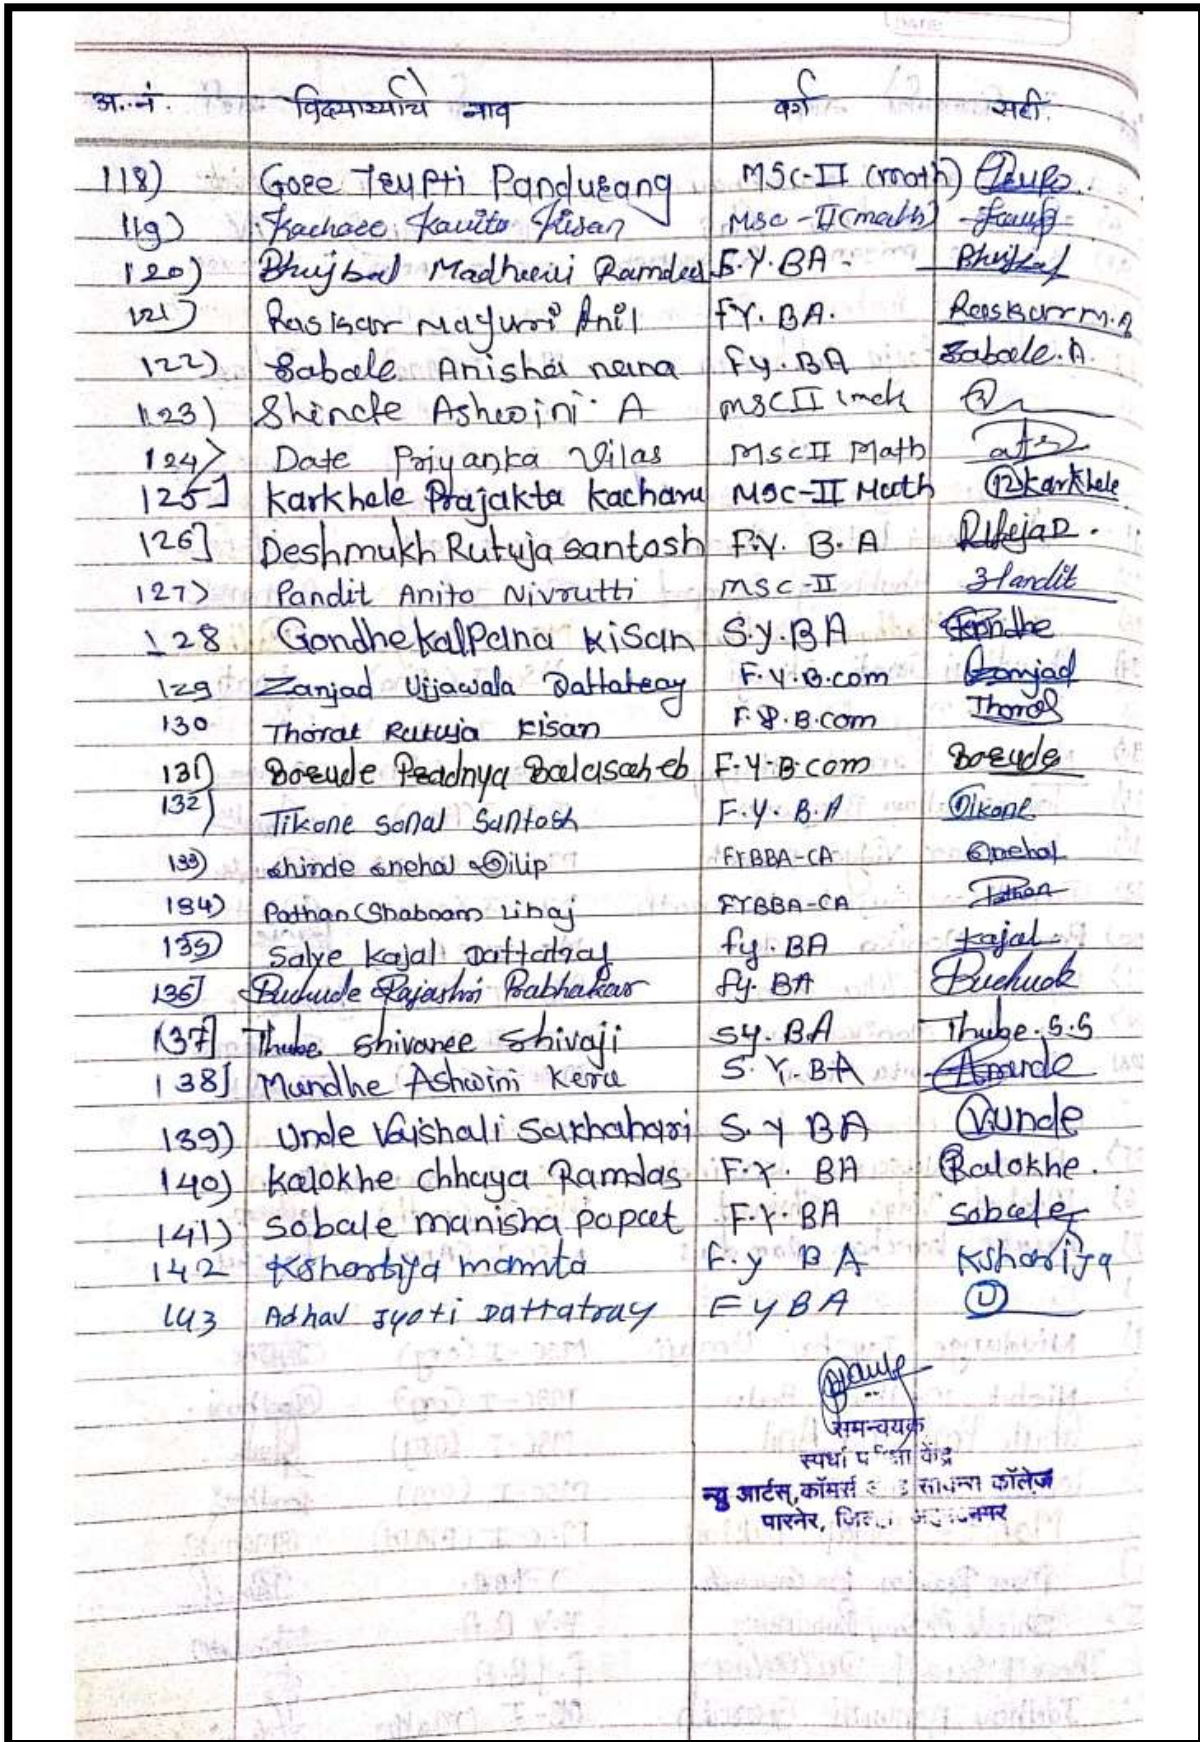 अ.नं. विद्यार्थ्याचे नाव वर्ग सही.
118) Gore Trupti Pandurang MSC-II (math)
119) Kachare Kavita Kisan MSC-II (math)
120) Bhujbal Madhuri Ramdas F.Y.BA - Bhujbal
121) Raskar Mayuri Anil FY.BA. Raskar M.A
122) Sabale Anisha nana Fy.BA Sabale.A.
123) Shinde Ashwini A MSCII
124) Date Priyanka Vilas MscII Math
125] Karkhele Prajakta Kacharu MSC-II Math Karkhele
126] Deshmukh Rutuja santosh F.Y. B.A RutujaD.
127) Pandit Anita Nivrutti MSC-II Pandit
128 Gondhe Kalpana Kisan S.Y.BA Gondhe
129 Zanjad Ujjawala Dattatray F.Y.B.com Zanjad
130 Thorat Rutuja Kisan F.Y.B.com Thorat
131) Borude Pradnya Balasaheb F.Y.B.com Borude
132) Tikone Sonal Santosh F.Y.B.A Tikone
133) Shinde Snehal Dilip FYBBA-CA Snehal
134) Pathan Shabnam FYBBA-CA Pathan
135) Salve Kajal Dattatray fy.BA Kajal
136] Buchude Rajashri Prabhakar fy.BA Buchude
137] Thube Shivanee Shivaji SY.BA Thube.S.S
138] Mundhe Ashwini Keru S.Y.BA
139) Unde Vaishali Sakhahari S.Y BA V.Unde
140) Kalokhe Chhaya Ramdas F.Y. BA Kalokhe.
141) Sabale manisha popat F.Y.BA Sabale
142 Kshatriya mamta F.y BA Kshatriya
143 Adhav Jyoti Dattatray FYBA
समन्वयक
स्पर्धा परीक्षा केंद्र
न्यु आर्टस्,कॉमर्स अॅन्ड सायन्स कॉलेज
पारनेर, जिल्हा अहमदनगर